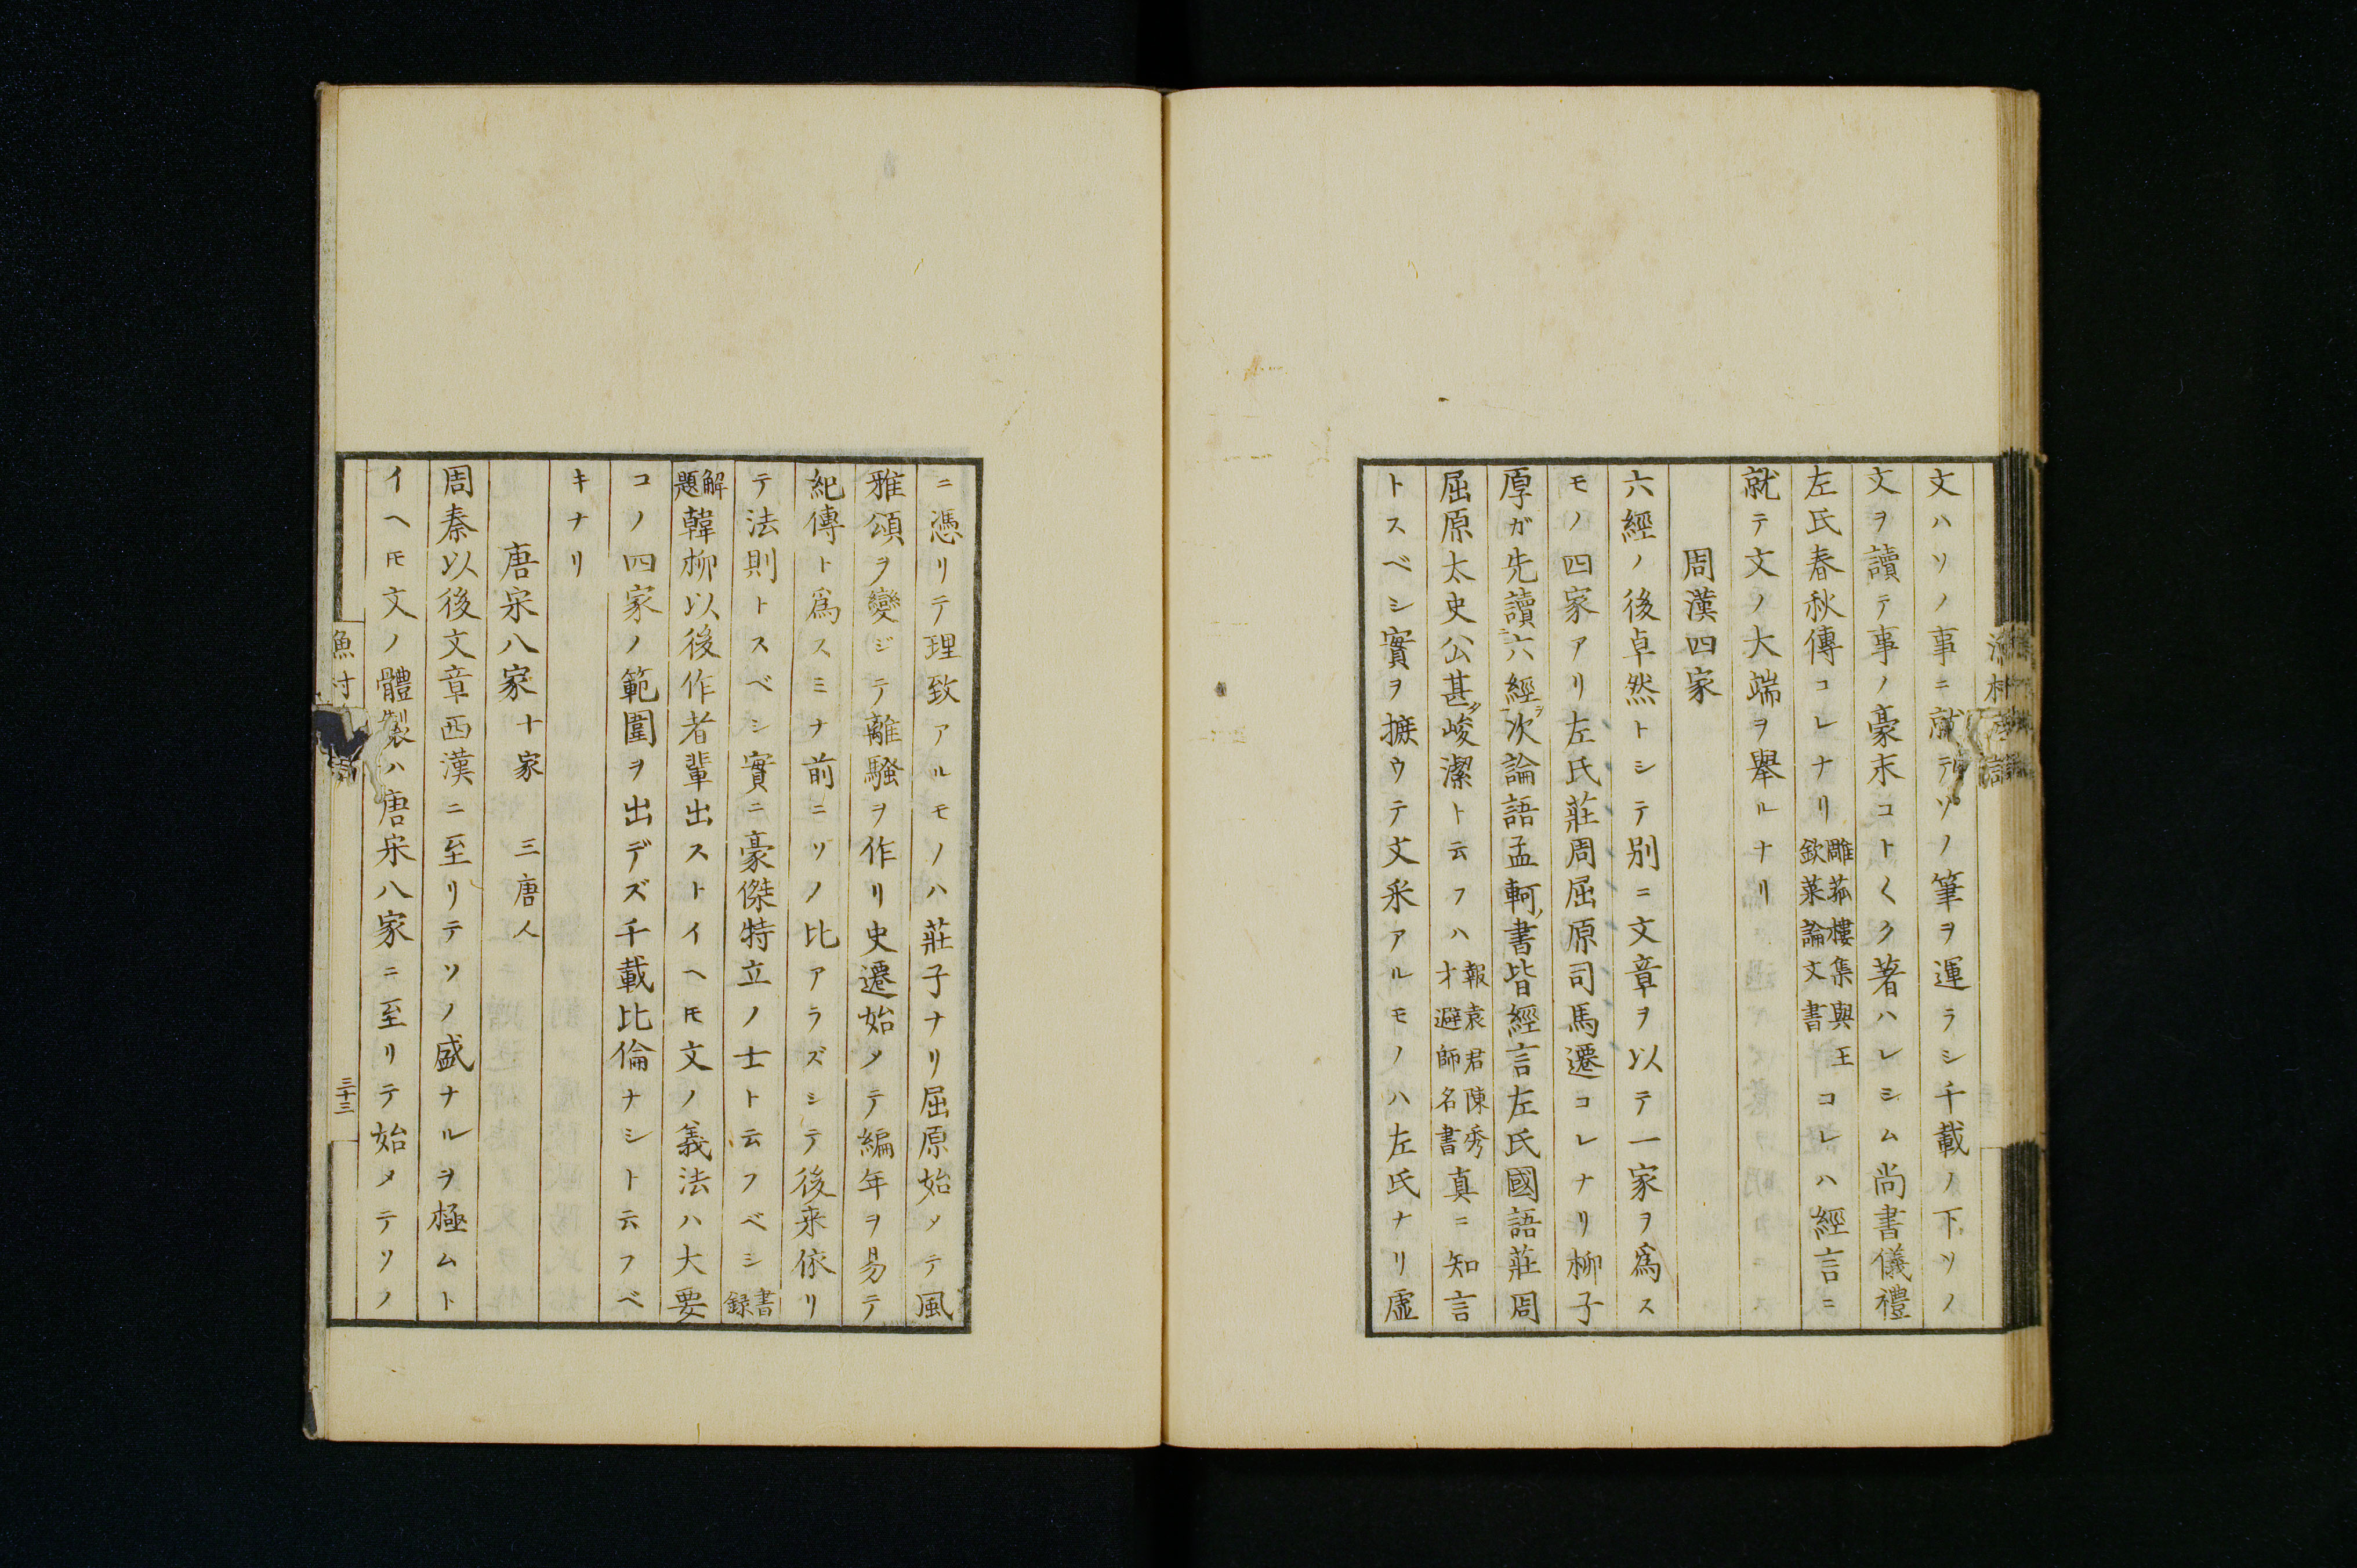 文ハソノ事ニ就テソノ筆ヲ運ラシ千載ノ下ソノ
文ヲ讀テ事ノ豪末コト〱ク著ハレシム尚書儀禮
左氏春秋傳コレナリ雕菰樓集與王欽萊論文書コレハ經言ニ
就テ文ノ大端ヲ舉ルナリ
周漢四家
六經ノ後卓然トシテ別ニ文章ヲ以テ一家ヲ爲ス
モノ四家アリ左氏莊周屈原司馬遷コレナリ柳子
厚ガ先讀六經次論語孟軻書皆經言左氏國語莊周
屈原太史公甚峻潔ト云フハ報袁君陳秀才避師名書真ニ知言
トスベシ實ヲ摭ウテ文采アルモノハ左氏ナリ虚
ニ憑リテ理致アルモノハ莊子ナリ屈原始メテ風
雅頌ヲ變ジテ離騷ヲ作リ史遷始メテ編年ヲ易テ
紀傳ト爲スミナ前ニソノ比アラズシテ後来依リ
テ法則トスベシ實ニ豪傑特立ノ士ト云フベシ書録
解題韓柳以後作者輩出ストイヘ𪜈文ノ義法ハ大要
コノ四家ノ範圍ヲ出デズ千載比倫ナシト云フベ
キナリ
唐宋八家 十家 三唐人
周秦以後文章西漢ニ至リテソノ盛ナルヲ極ムト
イヘ𪜈文ノ體製ハ唐宋八家ニ至リテ始メテソノ
三十三